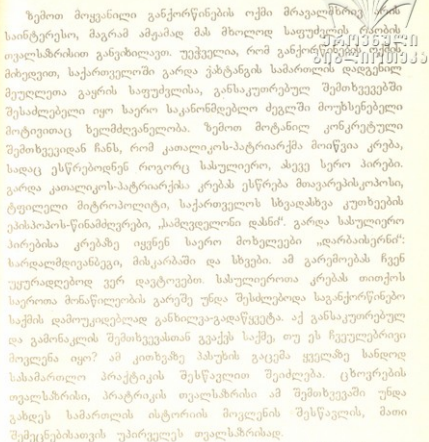 ზემოთ მოყვანილი განქორწინების ოქმი მრავალმხრივ არის
საინტერესო, მაგრამ ამჟამად მას მხოლოდ საფუძვლის რაობის
თვალსაზრისით განვიხილავთ. უეჭველია, რომ განქორწინების ოქმის
მიხედვით, საქართველოში გარდა ვახტანგის სამართლის დადგენილ
მეუღლეთა გაყრის საფუძვლისა, განსაკუთრებულ შემთხვევებში
შესაძლებელი იყო საერო საკანონმდებლო ძეგლში მოუხსენებელი
მოტივითაც ხელმძღვანელობა. ზემოთ მოტანილ კონკრეტული
შემთხვევიდან ჩანს, რომ კათალიკოს-პატრიარქმა მოიწვია კრება,
სადაც ესწრებოდნენ როგორც სასულიერო, ასევე სერო პირები.
გარდა კათალიკოს-პატრიარქისა კრებას ესწრება მთავარეპისკოპოსი,
ტფილელი მიტროპოლიტი, საქართველოს სხვადასხვა კუთხეების
ეპისკოპოს-წინამძღვრები, „სამღვდელონი დასნი“. გარდა სასულიერო
პირებისა კრებაზე იყვნენ საერო მოხელეები „დარბაისერნი“:
სარდალმდივანბეგი, მისკარბაში და სხვები. ამ გარემოებას ჩვენ
უყურადღებოდ ვერ დავტოვებთ. სასულიეროთა კრებას თითქოს
საეროთა მონაწილეობის გარეშე უნდა შესძლებოდა საგანქორწინებო
საქმის დამოუკიდებლად განხილვა-გადაწყვეტა. აქ განსაკუთრებულ
და გამონაკლის შემთხვევასთან გვაქვს საქმე, თუ ეს ჩვეულებრივი
მოვლენა იყო? ამ კითხვაზე პასუხის გაცემა ყველაზე სანდოდ
სასამართლო პრაქტიკის შესწავლით შეიძლება. ცხოვრების
თვალსაზრისი, პრატრიკის თვალსაზრისი ამ შემთხვევაში უნდა
გახდეს სამართლის ისტორიის მოვლენის შესწავლის, მათი
შემეცნებისათვის უპირველეს თვალსაზრისად.
ეროვნული
ბიბლიოთეკა